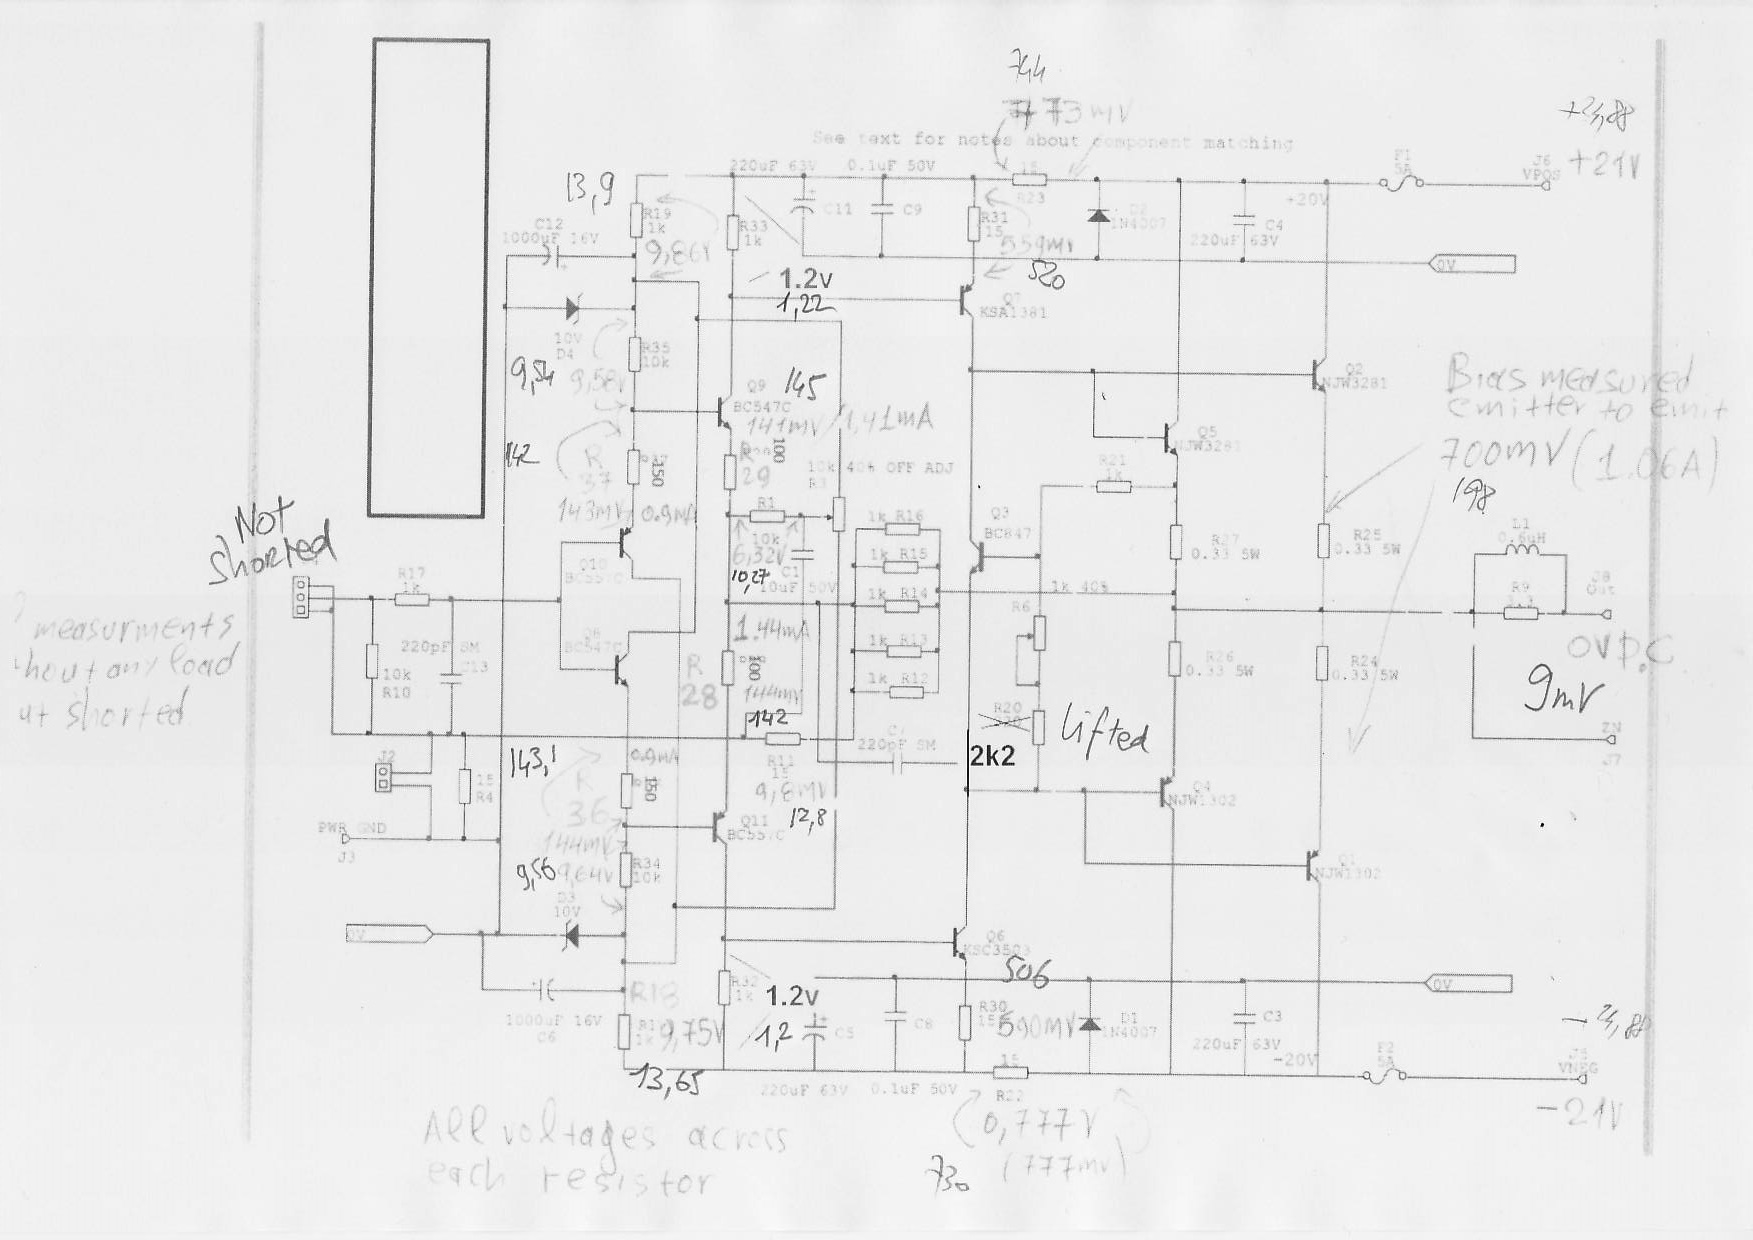 744
773mV
+24,88
See text for notes about component matching
220uF 63V
0.1uF 50V
15
R23
F1
5A
J6
VPOS
+21V
13,9
R19
1k
9,86V
R33
1k
C11
C9
R31
15
559mV
520
1N4007
C4
220uF 63V
+20V
0V
C12
1000uF 16V
1.2v
1,22
Q7
KSA1381
10V
D4
R35
10k
9,54
9,58V
Q9
BC547C
145
141mV/1,41mA
Q2
NJW3281
Bias measured
emitter to emit
700mV (1.06A)
198
Q5
NJW3281
142
R
37
150
143mV
0.9mA
100
R
29
10k 40% OFF ADJ
R21
1k
Not
shorted
R1
10k
6,32V
10,27
C1
10uF 50V
1k R16
1k R15
1k R14
1k R13
1k R12
Q3
BC847
R27
0.33 5W
R25
0.33 5W
L1
0.6uH
R9
J8
Out
Q10
BC557C
R17
1k
1k 40%
R6
measurments
hout any load
ut shorted
220pF SM
C13
10k
R10
Q8
BC547C
1.44mA
R
28
100
144mV
142
R26
0.33 5W
R24
0.33 5W
0V D.C
9mV
R20
lifted
2k2
220pF SM
ZN
J7
J2
15
R4
143,1
0.9mA
R
36
150
144mV
R11
15
9,8mV
12,8
Q11
BC557C
Q4
NJW1302
PWR GND
J3
9,56
9,64V
R34
10k
D3
10V
Q1
NJW1302
0V
Q6
KSC3503
506
0V
R18
1k
9,75V
1000uF 16V
C6
R32
1k
1.2v
1,2
C5
C8
R30
15
590mV
D1
1N4007
C3
220uF 63V
-20V
F2
5A
J5
VNEG
-21V
13,65
220uF 63V
0.1uF 50V
15
R22
0,777V
(777mv)
730
All voltages across
each resistor